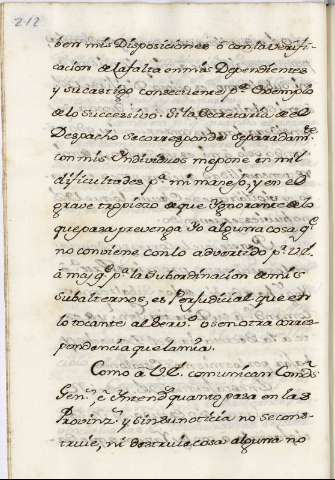 212
ben mis Disposiciones o con la verifi-
cacion de la falta en mis Dependientes
y su castigo consecuente pª Exemplo
de lo successivo. Si la Secretaria de el
Despacho se corresponde separadamte
con mis Individuos me pone en mil
dificultades pª mi manejo, y en el
grave tropiezo de que Ignorante de lo
que pasa prevenga Yo alguna cosa qe
no conviene con lo advertido pr VE.
á mas qe pª la subordinacion de mis
subalternos, es Perjudicial que en
lo tocante al Servo o sen otra corres-
pondencia que la mia.
Como a VE. comunican Comdte
Genl é Intendte quanto pasa en las
Provinzs y sin su noticia no se cons-
truie, ni destruie cosa alguna no